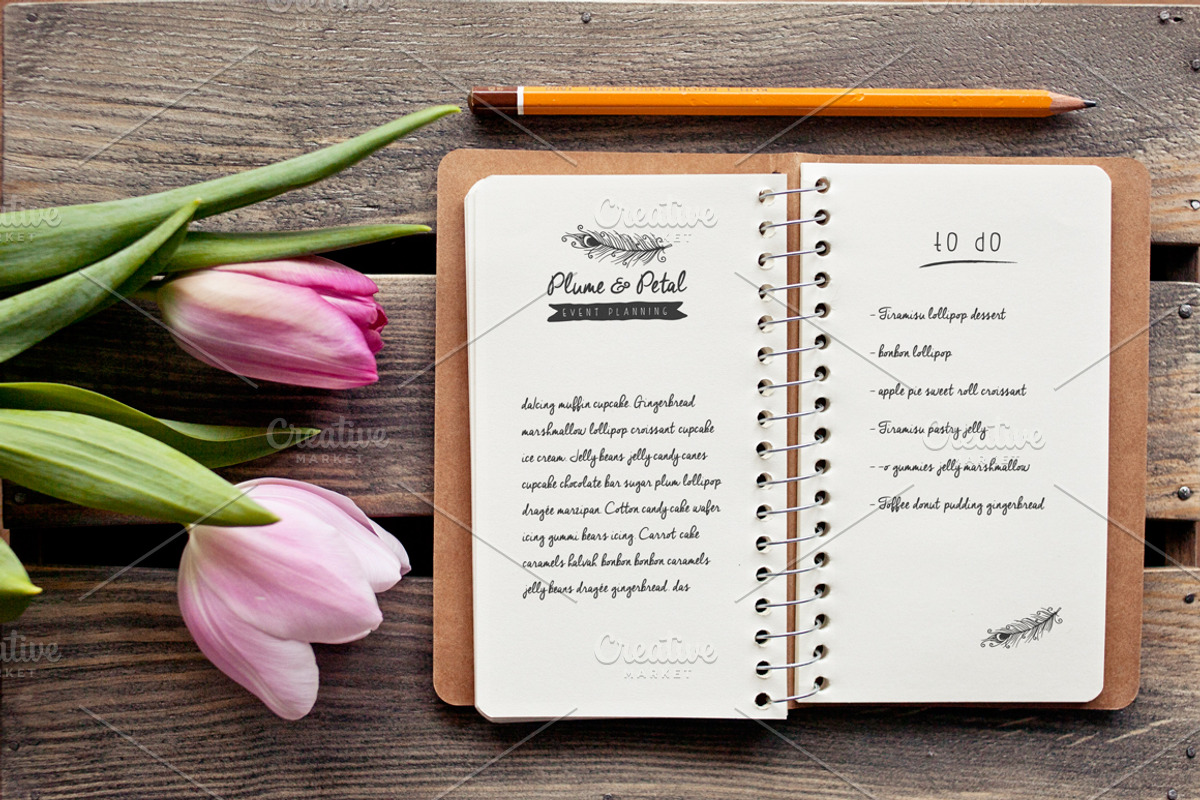 Plume & Petal
EVENT PLANNING
da1cing muffin cupcake. Gingerbread
marshmallow lollipop croissant cupcake
ice cream. Jelly beans jelly candy canes
cupcake chocolate bar sugar plum lollipop
dragée marzipan. Cotton candy cake wafer
icing gummi bears icing. Carrot cake
caramels halvah bonbon bonbon caramels
jelly beans dragée gingerbread. das
to do
- Tiramisu lollipop dessert
- bonbon lollipop
- apple pie sweet roll croissant
- Tiramisu pastry jelly
- --o gummies jelly marshmallow
- Toffee donut pudding gingerbread
Creative
MARKET
Creative
MARKET
Creative
MARKET
Creative
MARKET